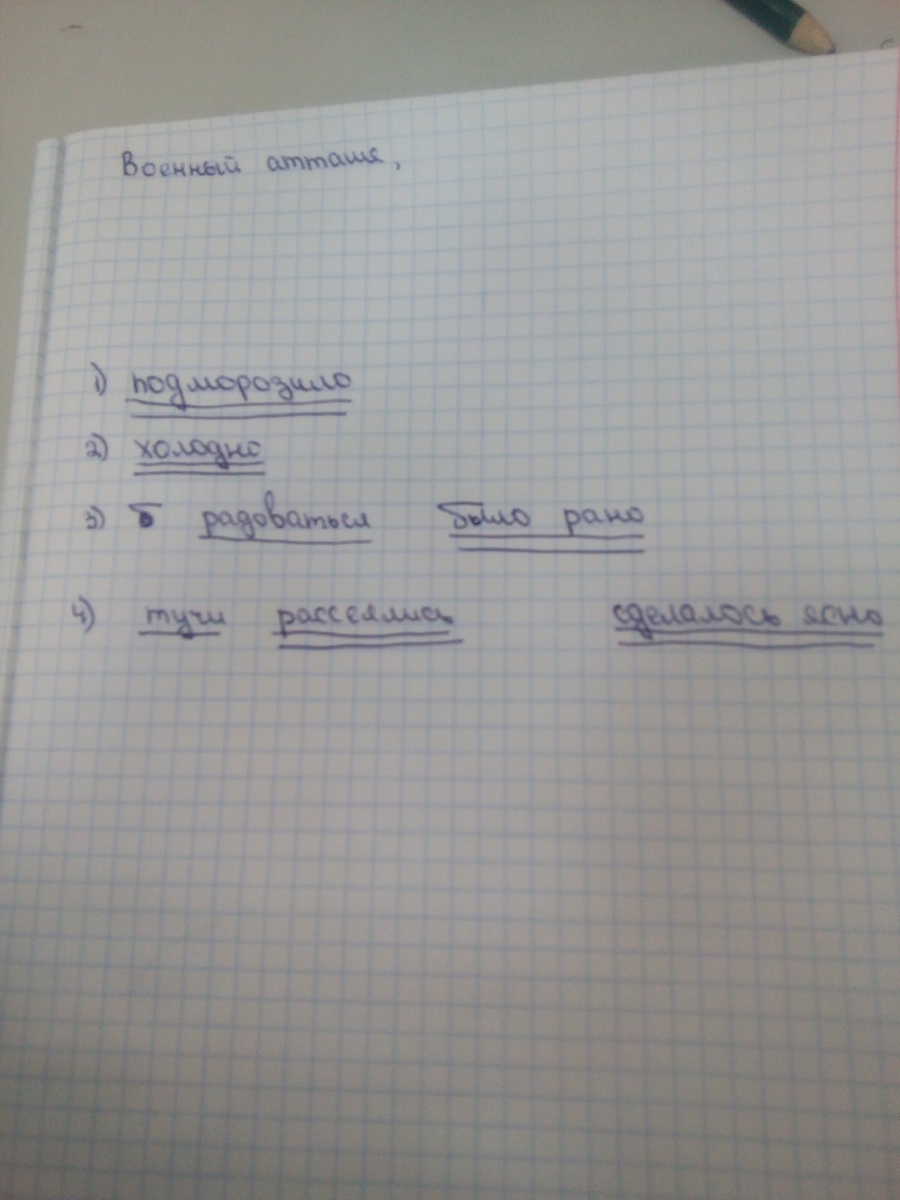 Военный атташе,
1) подморозило
2) холодно
3) б радоваться было рано
4) тучи рассеялись сделалось ясно